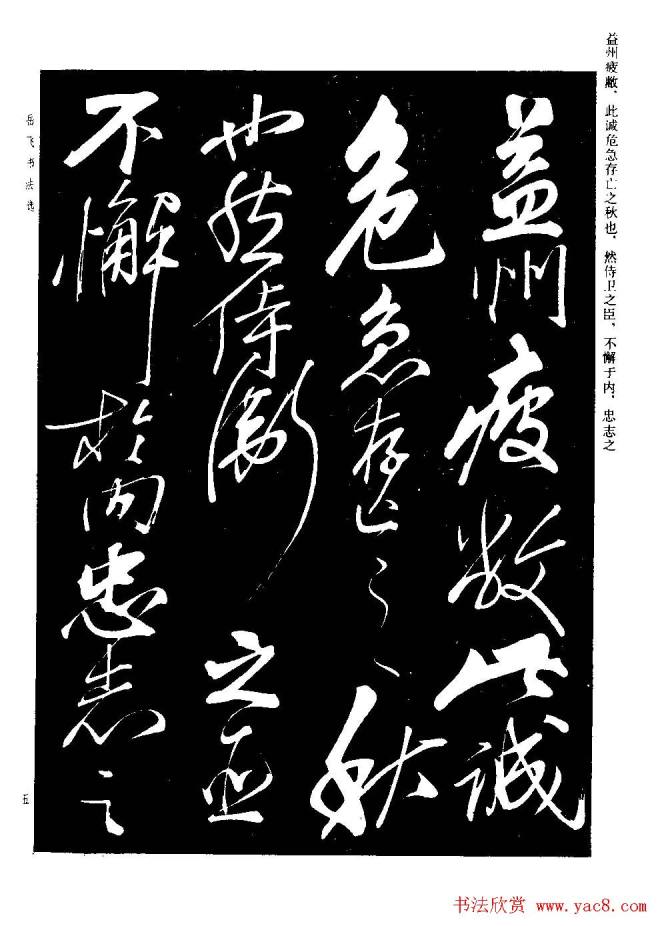 益州疲敝、此诚危急存亡之秋也，然侍卫之臣，不懈于内，忠志之
益州疲敝此誠
危急存亡之秋
也然侍衛之臣
不懈於内忠志之
岳飞书法选
五
书法欣赏 www.yac8.com